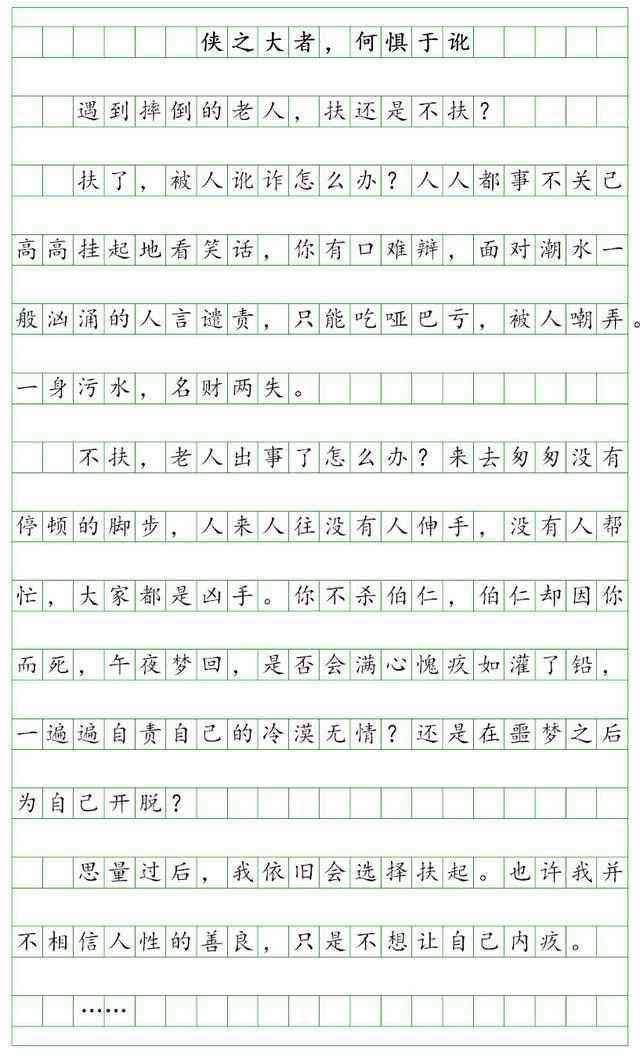 侠之大者，何惧于讹
遇到摔倒的老人，扶还是不扶？
扶了，被人讹诈怎么办？人人都事不关己
高高挂起地看笑话，你有口难辩，面对潮水一
般汹涌的人言谴责，只能吃哑巴亏，被人嘲弄。
一身污水，名财两失。
不扶，老人出事了怎么办？来去匆匆没有
停顿的脚步，人来人往没有人伸手，没有人帮
忙，大家都是凶手。你不杀伯仁，伯仁却因你
而死，午夜梦回，是否会满心愧疚如灌了铅，
一遍遍自责自己的冷漠无情？还是在噩梦之后
为自己开脱？
思量过后，我依旧会选择扶起。也许我并
不相信人性的善良，只是不想让自己内疚。
……